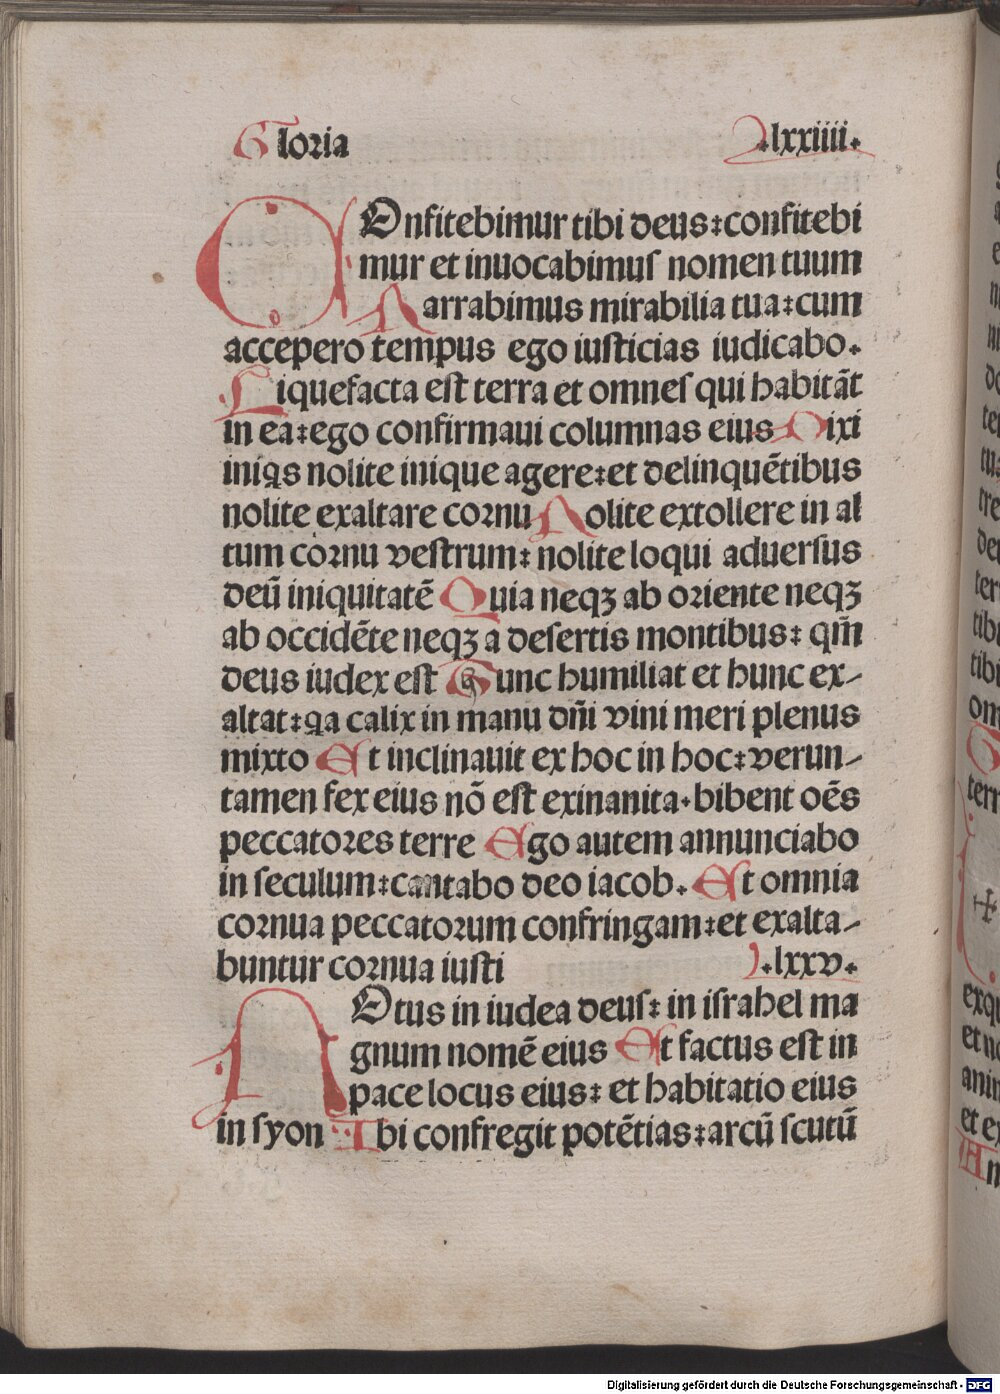 Gloria .lxxiiii.
COnfitebimur tibi deus: confitebi
mur et inuocabimus nomen tuum
Narrabimus mirabilia tua: cum
accepero tempus ego iusticias iudicabo.
Liquefacta est terra et omnes qui habitāt
in ea: ego confirmaui columnas eius Dixi
iniqs nolite inique agere: et delinquētibus
nolite exaltare cornu Nolite extollere in al
tum cornu vestrum: nolite loqui aduersus
deū iniquitatē Quia neqꝫ ab oriente neqꝫ
ab occidēte neqꝫ a desertis montibus: qm̄
deus iudex est Hunc humiliat et hunc ex-
altat: qa calix in manu dn̄i vini meri plenus
mixto Et inclinauit ex hoc in hoc: verun-
tamen fex eius nō est exinanita. bibent oēs
peccatores terre Ego autem annunciabo
in seculum: cantabo deo iacob. Et omnia
cornua peccatorum confringam: et exalta-
buntur cornua iusti .lxxv.
NOtus in iudea deus: in israhel ma
gnum nomē eius Et factus est in
pace locus eius: et habitatio eius
in syon Ibi confregit potētias: arcū scutū
Digitalisierung gefördert durch die Deutsche Forschungsgemeinschaft - DFG